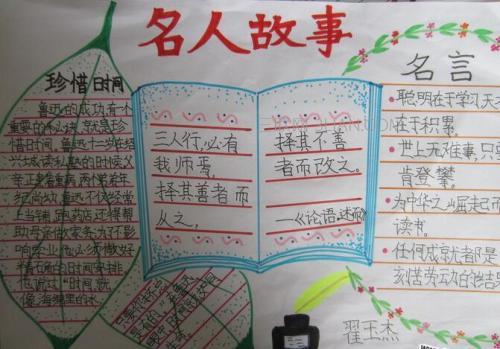 名人故事
珍惜时间
鲁迅的成功,有个
重要的秘诀,就是珍
惜时间。鲁迅十二岁在绍
兴城读私塾的时候,父
亲正患着重病,两个弟弟
年纪尚幼,鲁迅不仅经常
上当铺,跑药店,还得帮
助母亲做家务;为不影
响学业,他必须做好
精确的时间安排
三人行,必有
我师焉,
择其善者而
从之,
择其不善
者而改之。
——《论语·述而》
名言
聪明在于学习,天
在于积累。
世上无难事,只要
肯登攀。
为中华之崛起而
读书。
任何成就都是
刻苦劳动的结
翟玉杰